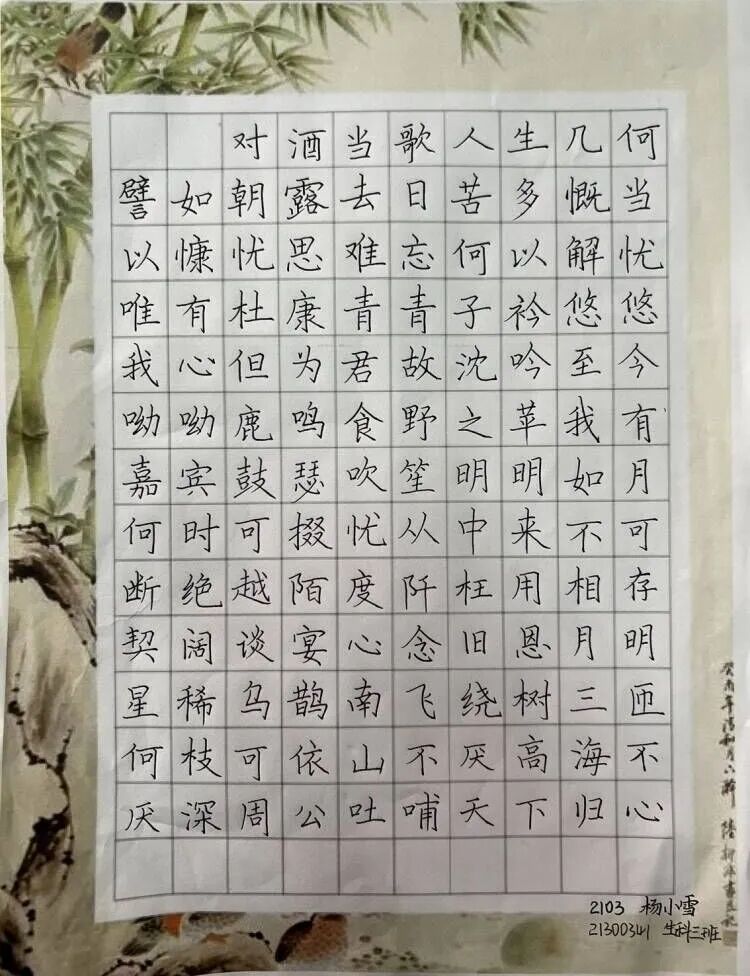 对酒当歌人生几何
譬如朝露去日苦多慨当
以慷忧思难忘何以解忧
唯有杜康青青子衿悠悠
我心但为君故沈吟至今
呦呦鹿鸣食野之苹我有
嘉宾鼓瑟吹笙明明如月
何时可掇忧从中来不可
断绝越陌度阡枉用相存
契阔谈宴心念旧恩月明
星稀乌鹊南飞绕树三匝
何枝可依山不厌高海不
厌深周公吐哺天下归心
2103 杨小雪
21300341 生科三班